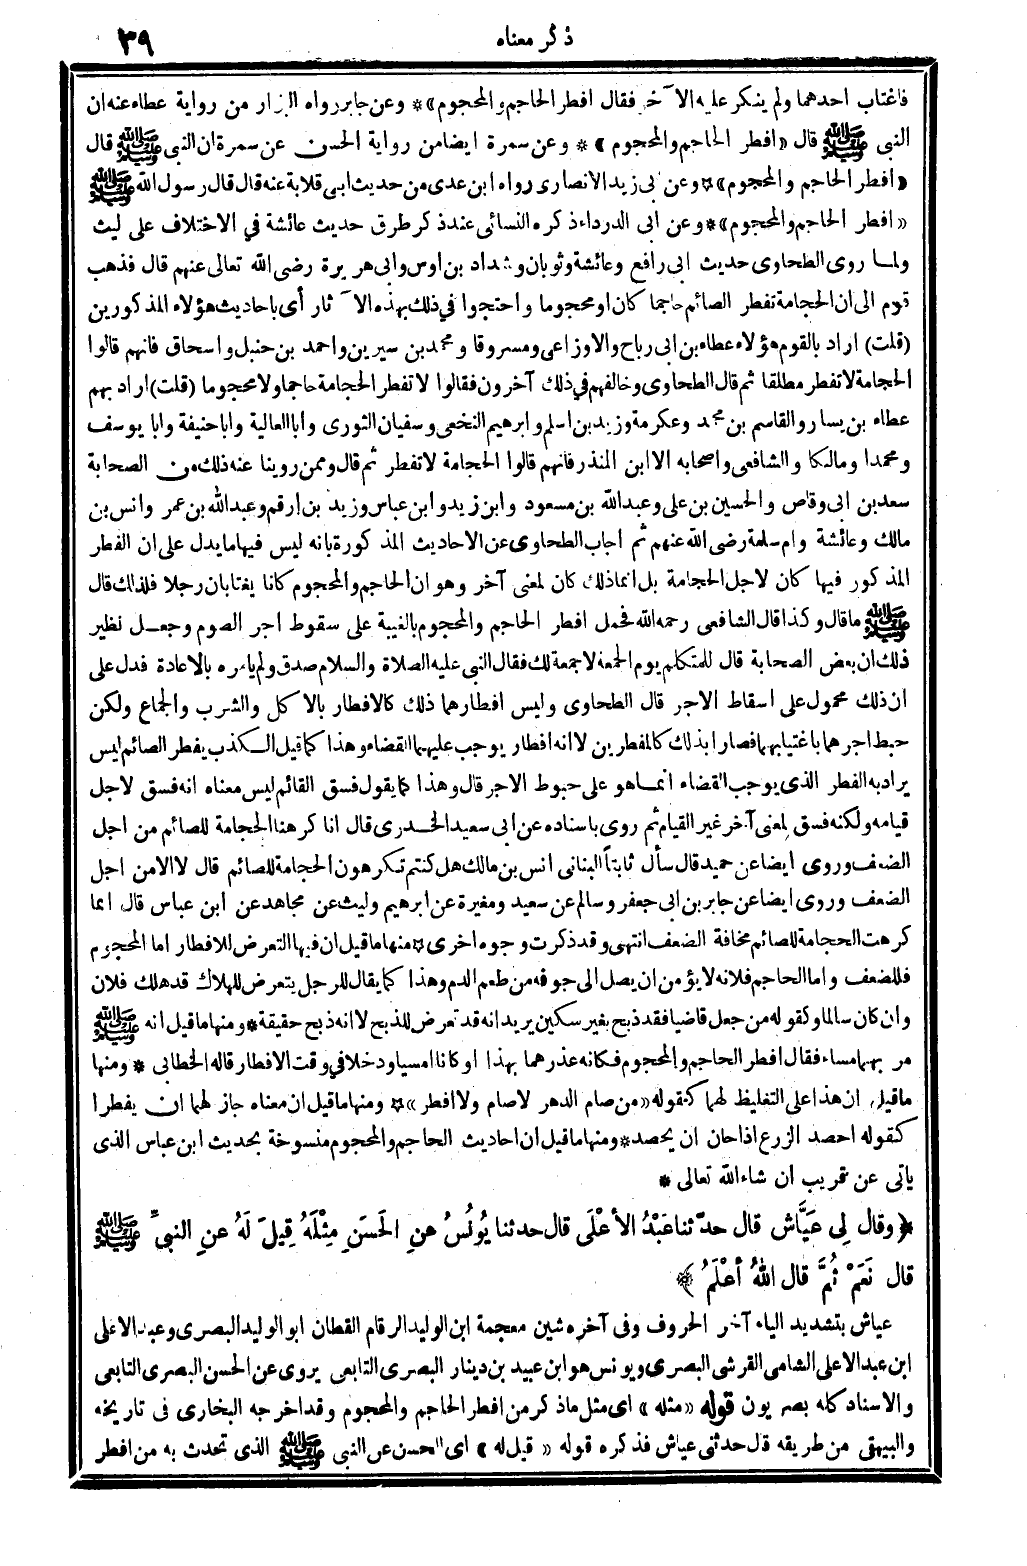 ذكر معناه
٣٩
فاغتاب احدهما ولم ينكر عليه الآخر فقال افطر الحاجم والمحجوم» * وعن جابر رواه البزار من رواية عطاء عنه ان
النبي ﷺ قال «افطر الحاجم والمحجوم» * وعن سمرة ايضا من رواية الحسن عن سمرة ان النبي ﷺ قال
«افطر الحاجم والمحجوم» * وعن ابي زيد الانصارى رواه ابن عدى من حديث ابى قلابة عنه قال قال رسول الله ﷺ
«افطر الحاجم والمحجوم» * وعن ابى الدرداء ذكره النسائى عند ذكر طرق حديث عائشة في الاختلاف على ليث
ولما روى الطحاوى حديث ابى رافع وعائشة وثوبان وشداد بن اوس وابى هريرة رضى الله تعالى عنهم قال فذهب
قوم الى ان الحجامة تفطر الصائم حاجما كان او محجوما واحتجوا في ذلك بهذه الآثار أى باحاديث هؤلاء المذكورين
(قلت) اراد بالقوم هؤلاء عطاء بن ابى رباح والاوزاعى ومسروقا ومحمد بن سيرين واحمد بن حنبل واسحاق فانهم قالوا
الحجامة لا تفطر مطلقا ثم قال الطحاوى وخالفهم في ذلك آخرون فقالوا لا تفطر الحجامة حاجما ولا محجوما (قلت) اراد بهم
عطاء بن يسار والقاسم بن محمد وعكرمة وزيد بن اسلم وابرهيم النخعى وسفيان الثورى وابا العالية وابا حنيفة وابا يوسف
ومحمدا ومالكا والشافعى واصحابه الا ابن المنذر فانهم قالوا الحجامة لا تفطر ثم قال وممن روينا عنه ذلك من الصحابة
سعد بن ابى وقاص والحسين بن على وعبدالله بن مسعود وابن زيد وابن عباس وزيد بن ارقم وعبدالله بن عمر وانس بن
مالك وعائشة وام سلمة رضى الله عنهم ثم اجاب الطحاوى عن الاحاديث المذكورة بانه ليس فيها ما يدل على ان الفطر
المذكور فيها كان لاجل الحجامة بل انما ذلك كان لمعنى آخر وهو ان الحاجم والمحجوم كانا يغتابان رجلا فلذلك قال
ﷺ ما قال وكذا قال الشافعى رحمه الله فحمل افطر الحاجم والمحجوم بالغيبة على سقوط اجر الصوم وجعل نظير
ذلك ان بعض الصحابة قال للمتكلم يوم الجمعة لا جمعة لك فقال النبى عليه الصلاة والسلام صدق ولم يامره بالاعادة فدل على
ان ذلك محمول على اسقاط الاجر قال الطحاوى وليس افطارهما ذلك كالافطار بالاكل والشرب والجماع ولكن
حبط اجرهما باغتيابهما فصارا بذلك كالمفطرين لا انه افطار يوجب عليهما القضاء وهذا كما قيل الكذب يفطر الصائم ليس
يراد به الفطر الذى يوجب القضاء انما هو على حبوط الاجر قال وهذا كما يقول فسق القائم ليس معناه انه فسق لاجل
قيامه ولكنه فسق لمعنى آخر غير القيام ثم روى باسناده عن ابى سعيد الخدرى قال انا كرهنا الحجامة للصائم من اجل
الضعف وروى ايضا عن حميد قال سأل ثابتا البنانى انس بن مالك هل كنتم تكرهون الحجامة للصائم قال لا الا من اجل
الضعف وروى ايضا عن جابر بن ابى جعفر وسالم عن سعيد ومغيرة عن ابرهيم وليث عن مجاهد عن ابن عباس قال انما
كرهت الحجامة للصائم مخافة الضعف انتهى وقد ذكرت وجوه اخرى * منها ما قيل ان فيها التعرض للافطار اما المحجوم
فللضعف واما الحاجم فلانه لا يؤمن ان يصل الى جوفه من طعم الدم وهذا كما يقال للرجل يتعرض للهلاك قد هلك فلان
وان كان سالما وكقوله من جعل قاضيا فقد ذبح بغير سكين يريد انه قد تعرض للذبح لا انه ذبح حقيقة * ومنها ما قيل انه ﷺ
مر بهما مساء فقال افطر الحاجم والمحجوم فكانه عذرهما بهذا او كانا امسيا ودخلا في وقت الافطار قاله الخطابى * ومنها
ما قيل ان هذا على التغليظ لهما كقوله «من صام الدهر لا صام ولا افطر» * ومنها ما قيل ان معناه جاز لهما ان يفطرا
كقوله احصد الزرع اذا حان ان يحصد * ومنها ما قيل ان احاديث الحاجم والمحجوم منسوخة بحديث ابن عباس الذى
ياتى عن قريب ان شاء الله تعالى *
﴿ وقال لِي عَيَّاش قال حدّثنا عَبْدُ الأعْلَى قال حدثنا يُونُسُ عنِ الحَسَنِ مِثْلَهُ قِيلَ لَهُ عنِ النبيِّ ﷺ
قال نَعَمْ ثُمَّ قال اللهُ أعْلَمُ ﴾
عياش بتشديد الياء آخر الحروف وفى آخره شين معجمة ابن الوليد الرقام القطان ابو الوليد البصرى وعبد الاعلى
ابن عبد الاعلى الشامى القرشى البصرى ويونس هو ابن عبيد بن دينار البصرى التابعى يروى عن الحسن البصرى التابعى
والاسناد كله بصريون قوله «مثله» اى مثل ما ذكر من افطر الحاجم والمحجوم وقد اخرجه البخارى فى تاريخه
والبيهقى من طريقه قال حدثنى عياش فذكره قوله «قيل له» اى الحسن عن النبى ﷺ الذى تحدث به من افطر